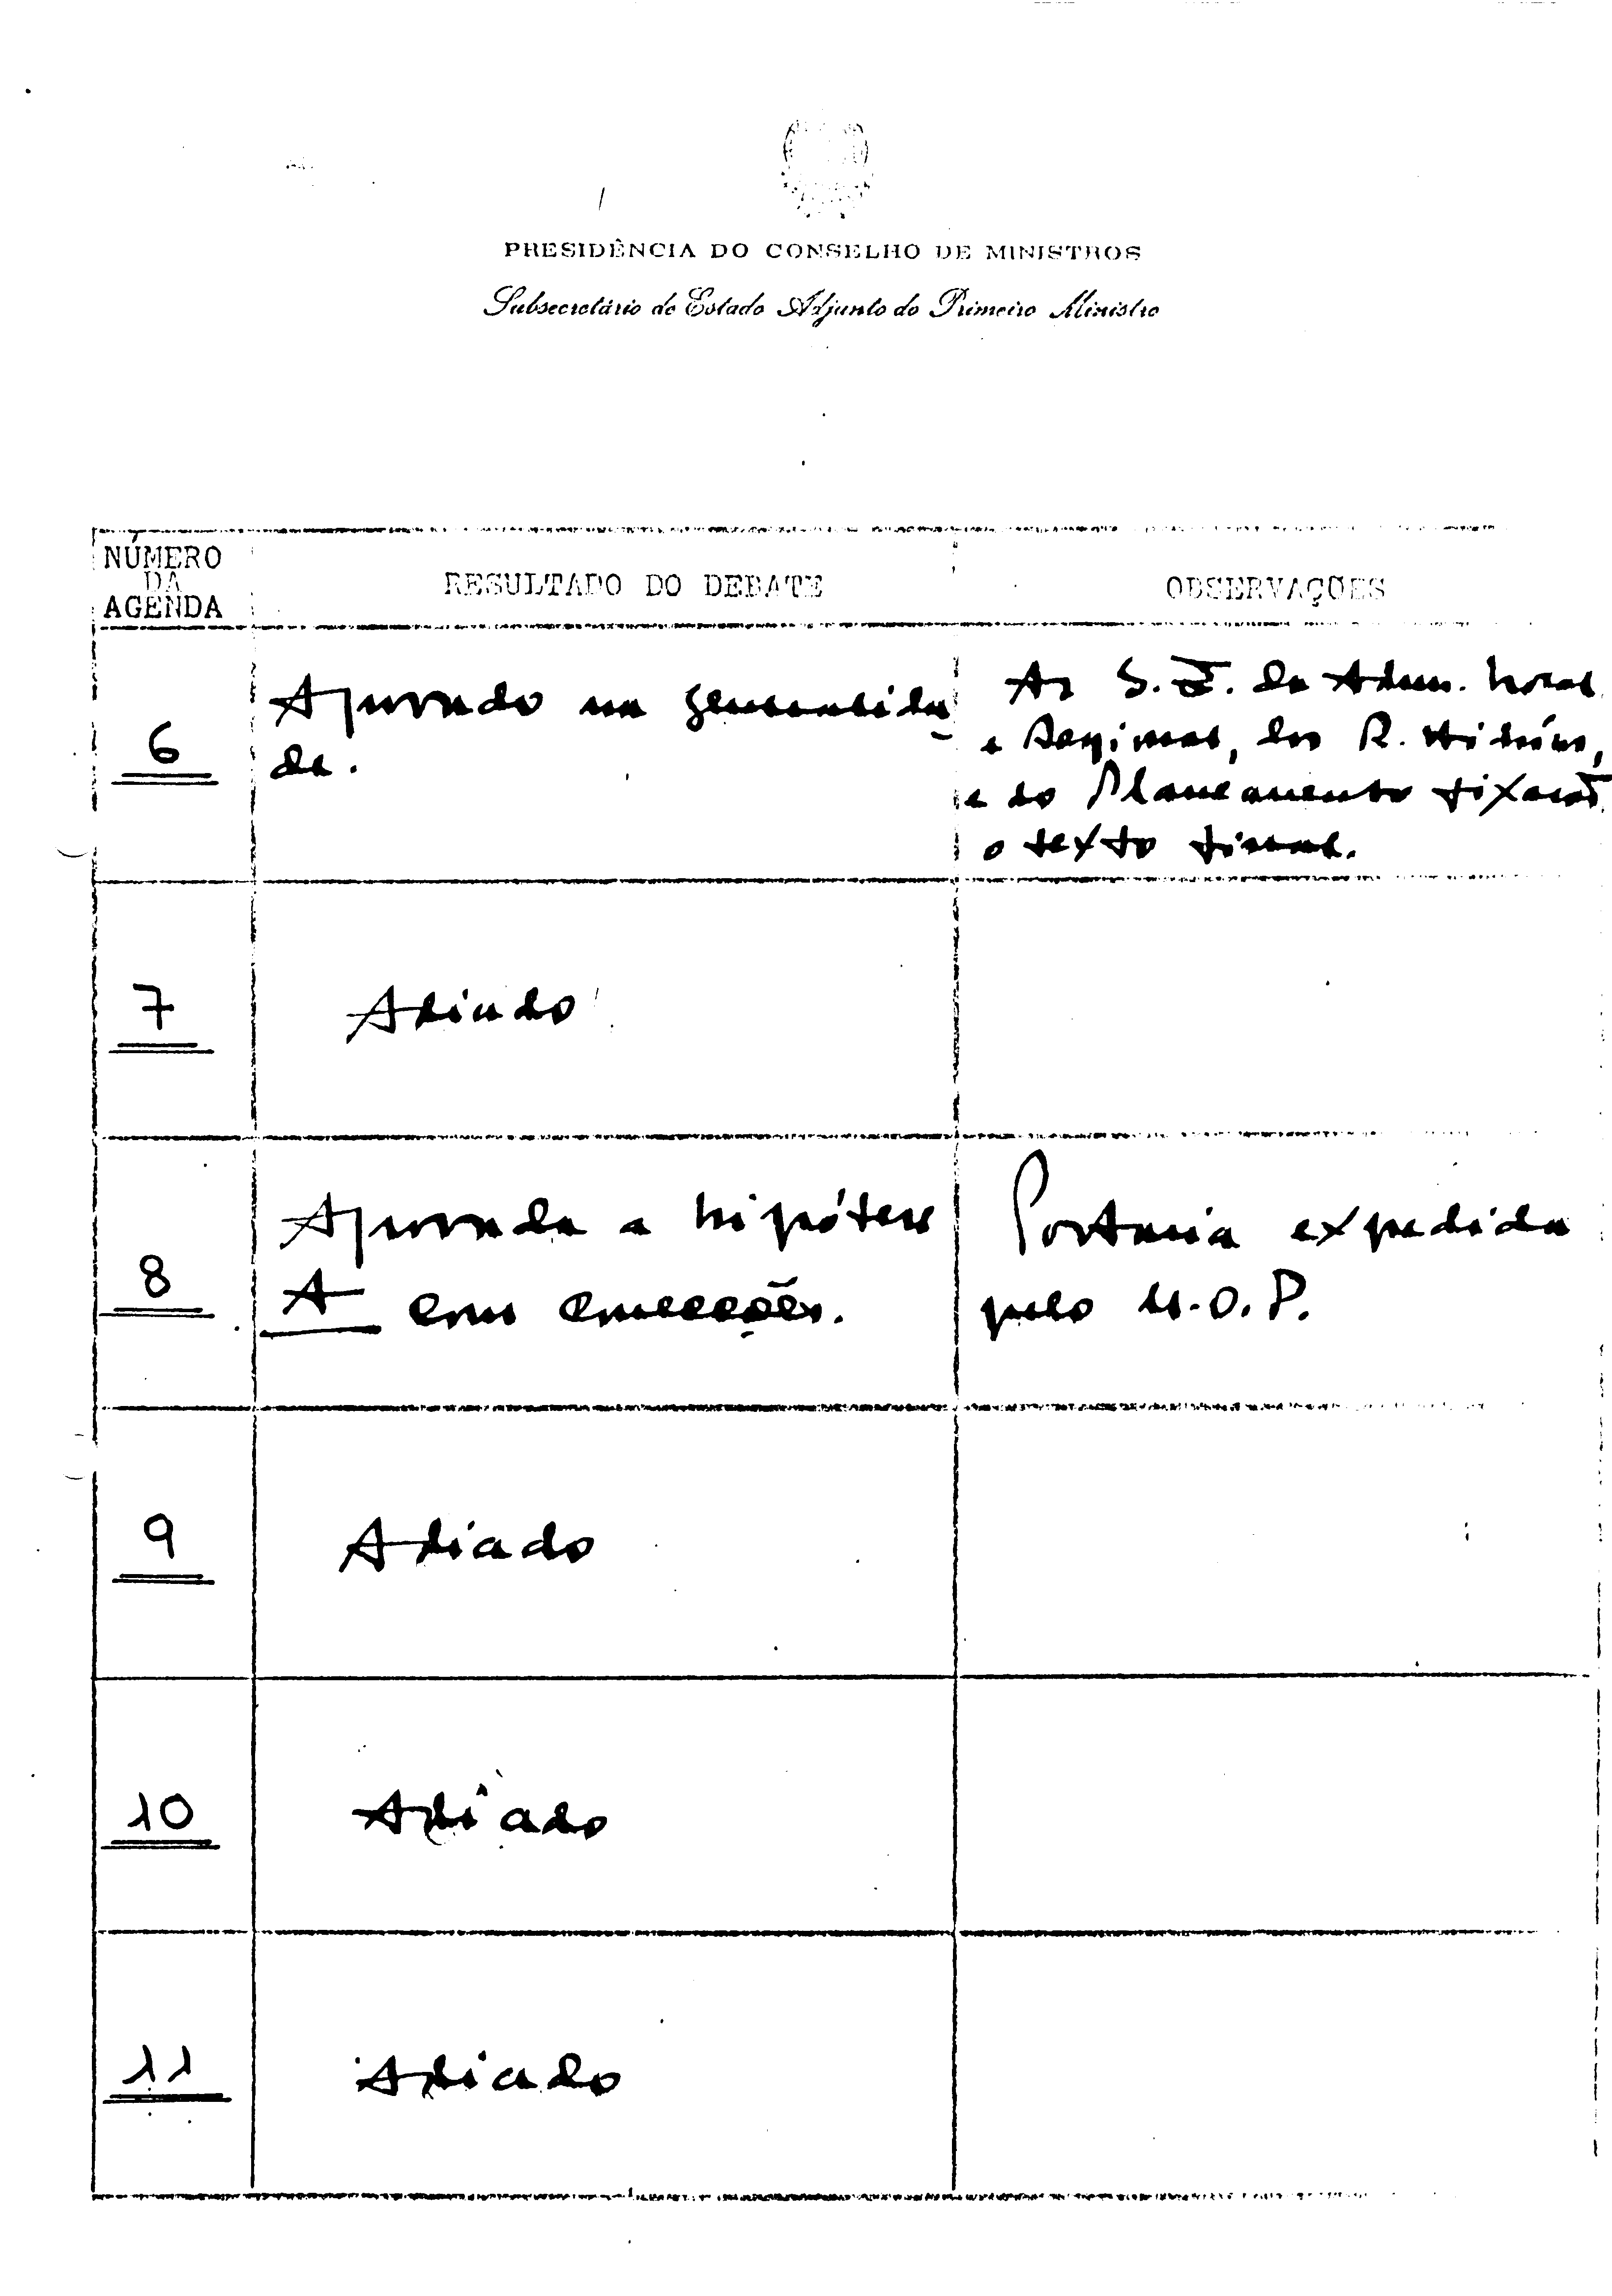 PRESIDÊNCIA DO CONSELHO DE MINISTROS
Subsecretário de Estado Adjunto do Primeiro Ministro
NÚMERO
DA
AGENDA
RESULTADO DO DEBATE
OBSERVAÇÕES
6
Aprovado na generalida-
de.
As S.E. da Adm. Local
e Regional, dos R. Hídricos,
e do Planeamento fixarão
o texto final.
7
Adiado
8
Aprovada a hipótese
A com correcções.
Portaria expedida
pelo M.O.P.
9
Adiado
10
Adiado
11
Adiado